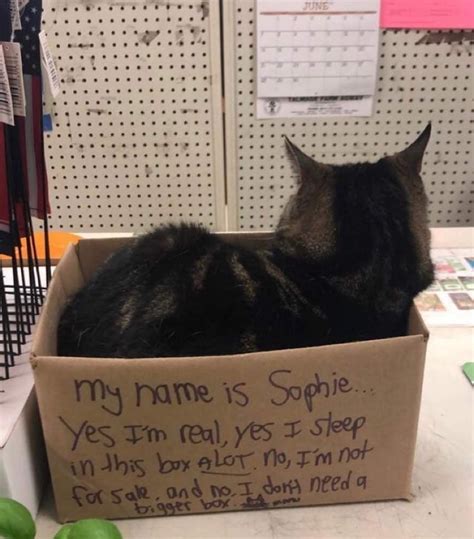 JUNE
my name is Sophie...
Yes I'm real, yes I sleep
in this box ALOT. no, I'm not
for sale. and no, I don't need a
bigger box.